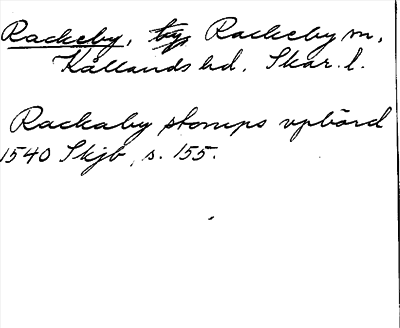 Rackeby, by, Rackeby sn,
Kållands hd. Skar. l.
Rackaby stomps vpbörd
1540 Skjb, s. 155.